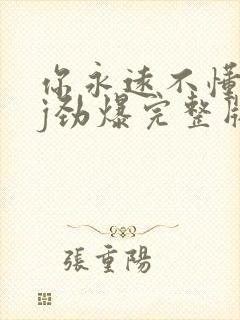 你永远不懂
j劲爆完整版
張重陽